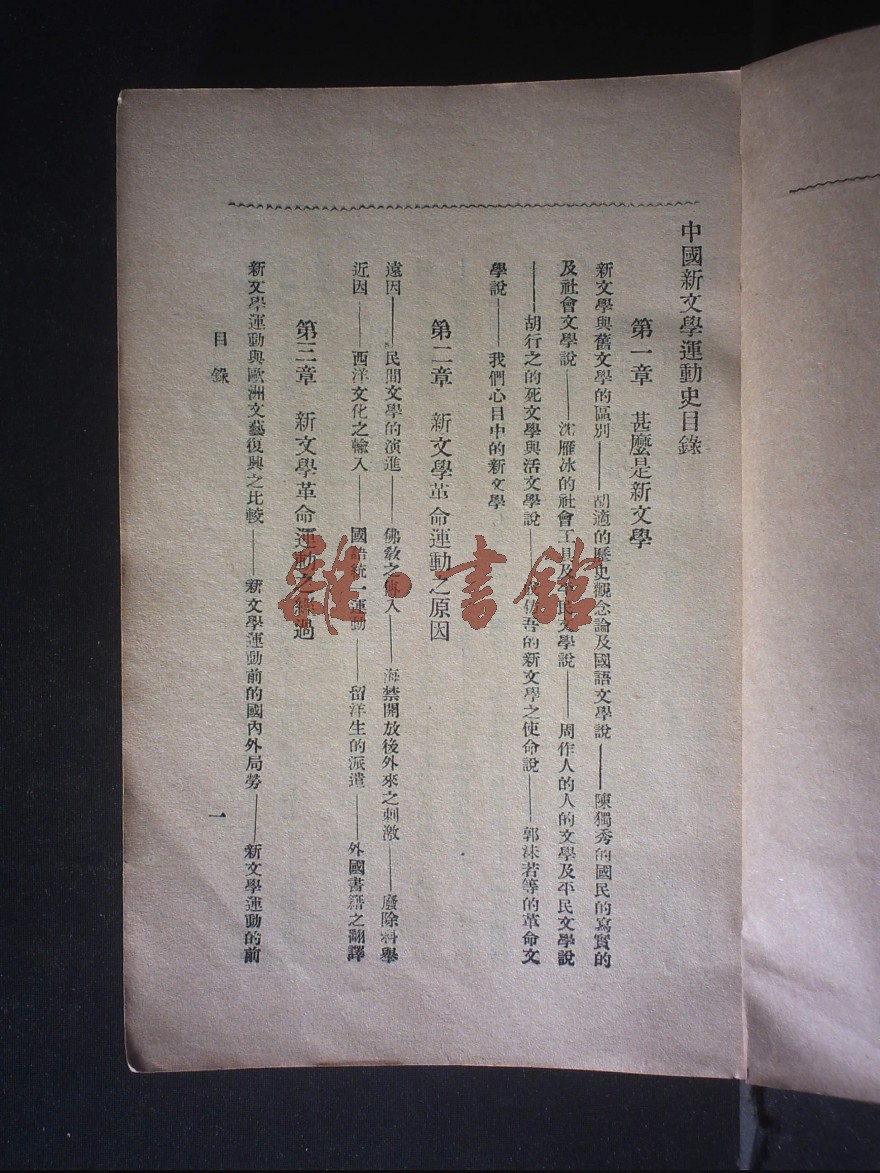 中國新文學運動史目錄
第一章 甚麼是新文學
新文學與舊文學的區別——胡適的歷史觀念論及國語文學說——陳獨秀的國民的寫實的
及社會文學說——沈雁冰的社會工具及平民文學說——周作人的人的文學及平民文學說
——胡行之的死文學與活文學說——成仿吾的新文學之使命說——郭沫若等的革命文
學說——我們心目中的新文學
第二章 新文學革命運動之原因
遠因——民間文學的演進——佛敎之傳入——海禁開放後外來之刺激——廢除科舉
近因——西洋文化之輸入——國語統一運動——留洋生的派遣——外國書籍之翻譯
第三章 新文學革命運動之經過
新文學運動與歐洲文藝復興之比較——新文學運動前的國內外局勢——新文學運動的前
目錄
一
雜·書館